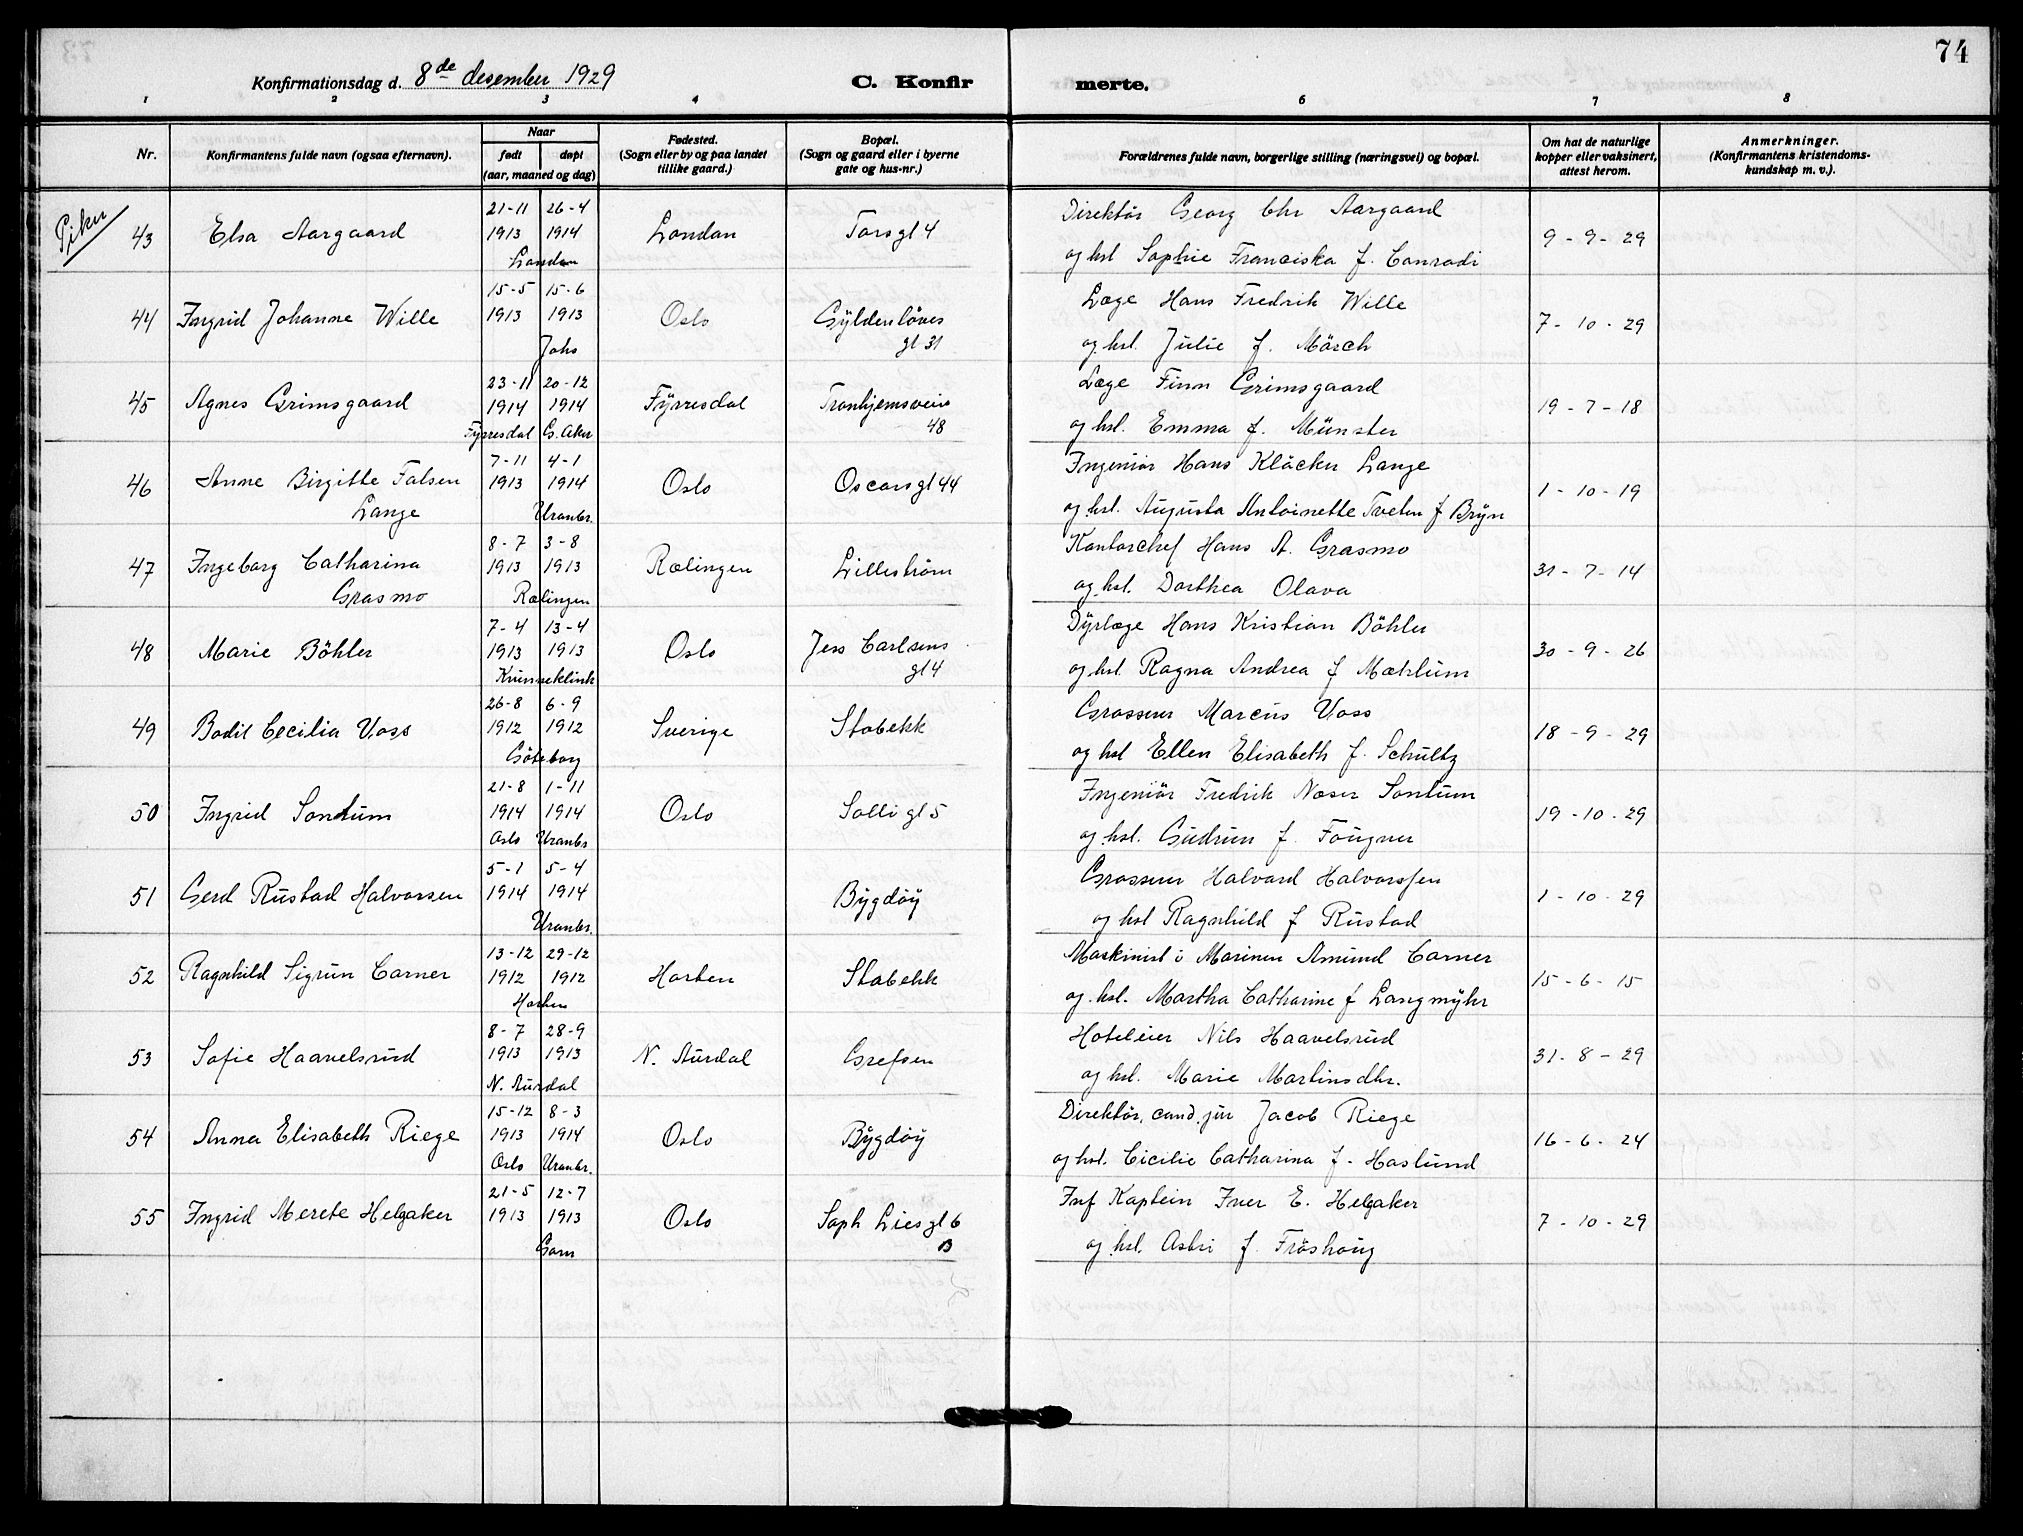 74
Konfirmationsdag d. 8de desember 1929
C. Konfirmerte.
1 2 3 4 6 7 8
Nr.
Konfirmantens fulde navn (ogsaa efternavn).
Naar
født døpt
(aar, maaned og dag)
Fødested.
(Sogn eller by og paa landet
tillike gaard.)
Bopæl.
(Sogn og gaard eller i byerne
gate og hus-nr.)
Forældrenes fulde navn, borgerlige stilling (næringsvei) og bopæl.
Om hat de naturlige
kopper eller vaksinert,
attest herom.
Anmerkninger.
(Konfirmantens kristendoms-
kundskap m. v.).
Piker
21-11 26-4 Direktör Georg Chr Aargaard
43 Elsa Aargaard 1913 1914 London Torsgt 4 9-9-29
London og hst Sophie Franciska f. Conradi
15-5 15-6 Læge Hans Fredrik Wille
44 Ingrid Johanne Wille 1913 1913 Oslo Gyldenlöves 7-10-29
Johs gt 31 og hst. Julie f. Mörch
23-11 20-12 Læge Finn Grimsgaard
45 Agnes Grimsgaard 1914 1914 Fyrresdal Tronhjemsveien 19-7-18
Fyrresdal G. Aker 48 og hst. Emma f. Münster
7-11 4-1 Ingeniör Hans Klöcker Lange
46 Anne Birgitte Falsen 1913 1914 Oslo Oscarsgt 44 1-10-19
Lange Uranbr. og hst. Augusta Antoinette Tveten f Bryn
8-7 3-8 Kontorchef Hans A. Grasmo
47 Ingeborg Catharina 1913 1913 Rælingen Lilleström 31-7-14
Grasmo Rælingen og hst. Dorthea Olava
7-4 13-4 Dyrlæge Hans Kristian Böhler
48 Marie Böhler 1913 1913 Oslo Jess Carlsens 30-9-26
gt 4 og hst. Ragna Andrea f Mæhlum
26-8 6-9 Grosserer Marcus Voss
49 Bodil Cecilia Voss 1912 1912 Sverige Stabekk 18-9-29
Göteborg og hst Ellen Elisabeth f. Schultz
21-8 1-11 Ingeniör Fredrik Næser Sontum
50 Ingrid Sontum 1914 1914 Oslo Solligt 5 19-10-29
Oslo Uranbr og hst. Gudrun f. Fougner
5-1 5-4 Grosserer Halvard Halvorssen
51 Gerd Rustad Halvorsen 1914 1914 Bygdöy 1-10-29
Uranbr. og hst Ragnhild f Rustad
13-12 29-12 Maskinist i Marinen Amund Corner
52 Ragnhild Sigrun Corner 1912 1912 Horten Stabekk 15-6-15
Horten og hst. Martha Catharine f Langmyhr
8-7 28-9 Hoteleier Nils Haavelsrud
53 Sofie Haavelsrud 1913 1913 N. Aurdal Grefsen 31-8-29
N. Aurdal og hst. Marie Martinsdtr.
15-12 8-3 Direktör, cand. jur Jacob Riege
54 Anna Elisabeth Riege 1913 1914 Oslo Bygdöy 16-6-24
Oslo Uranbr. og hst. Cicilie Catharina f. Haslund
21-5 12-7 Inf Kaptein Iver E. Helgaker
55 Ingrid Merete Helgaker 1913 1913 Oslo Soph Liesgt 6 7-10-29
Garn B og hst. Astri f. Fröshoug